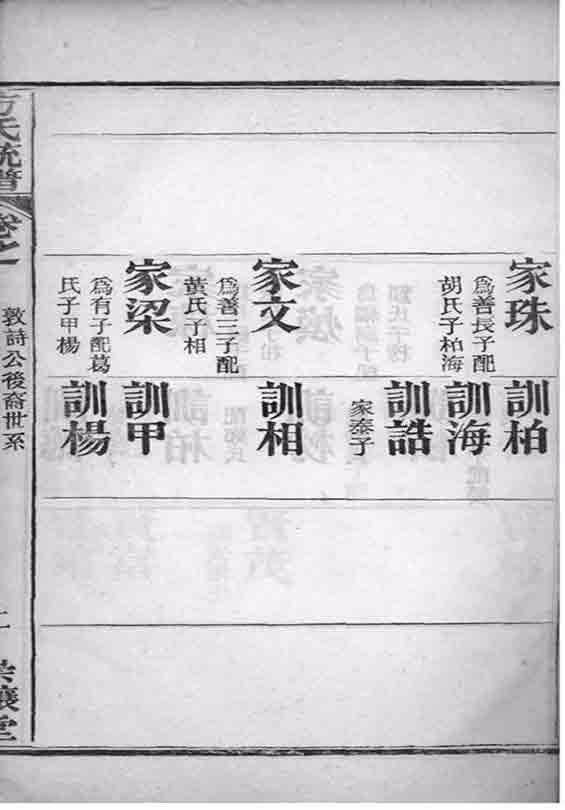 家珠
爲善長子配
胡氏子柏海
家文
爲善二子配
葉氏子相
家梁
爲有子配葛
氏子甲楊
訓柏
訓海
訓誥
家泰子
訓相
訓甲
訓楊
方氏統譜
卷之一
敦詩公後裔世系